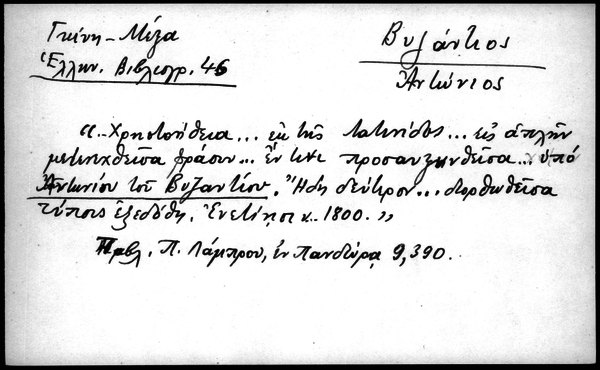 Γκίνη - Μέξα
Ἑλλην. Βιβλιογρ. 46
Βυζάντιος
Ἀντώνιος
"... Χρηστοήθεια ... ἐκ τῆς Λατινίδος ... εἰς ἁπλῆν
μετενεχθεῖσα φράσιν ... ἔν τινι προσαυξηνθεῖσα ... ὑπό
Ἀντωνίου τοῦ Βυζαντίου. Ἤδη δεύτερον ... διορθωθεῖσα
τύποις ἐξεδόθη. Ἐνετίησι κ. 1800. "
Πρβλ. Π. Λάμπρου, ἐν Πανδώρᾳ 9, 390.